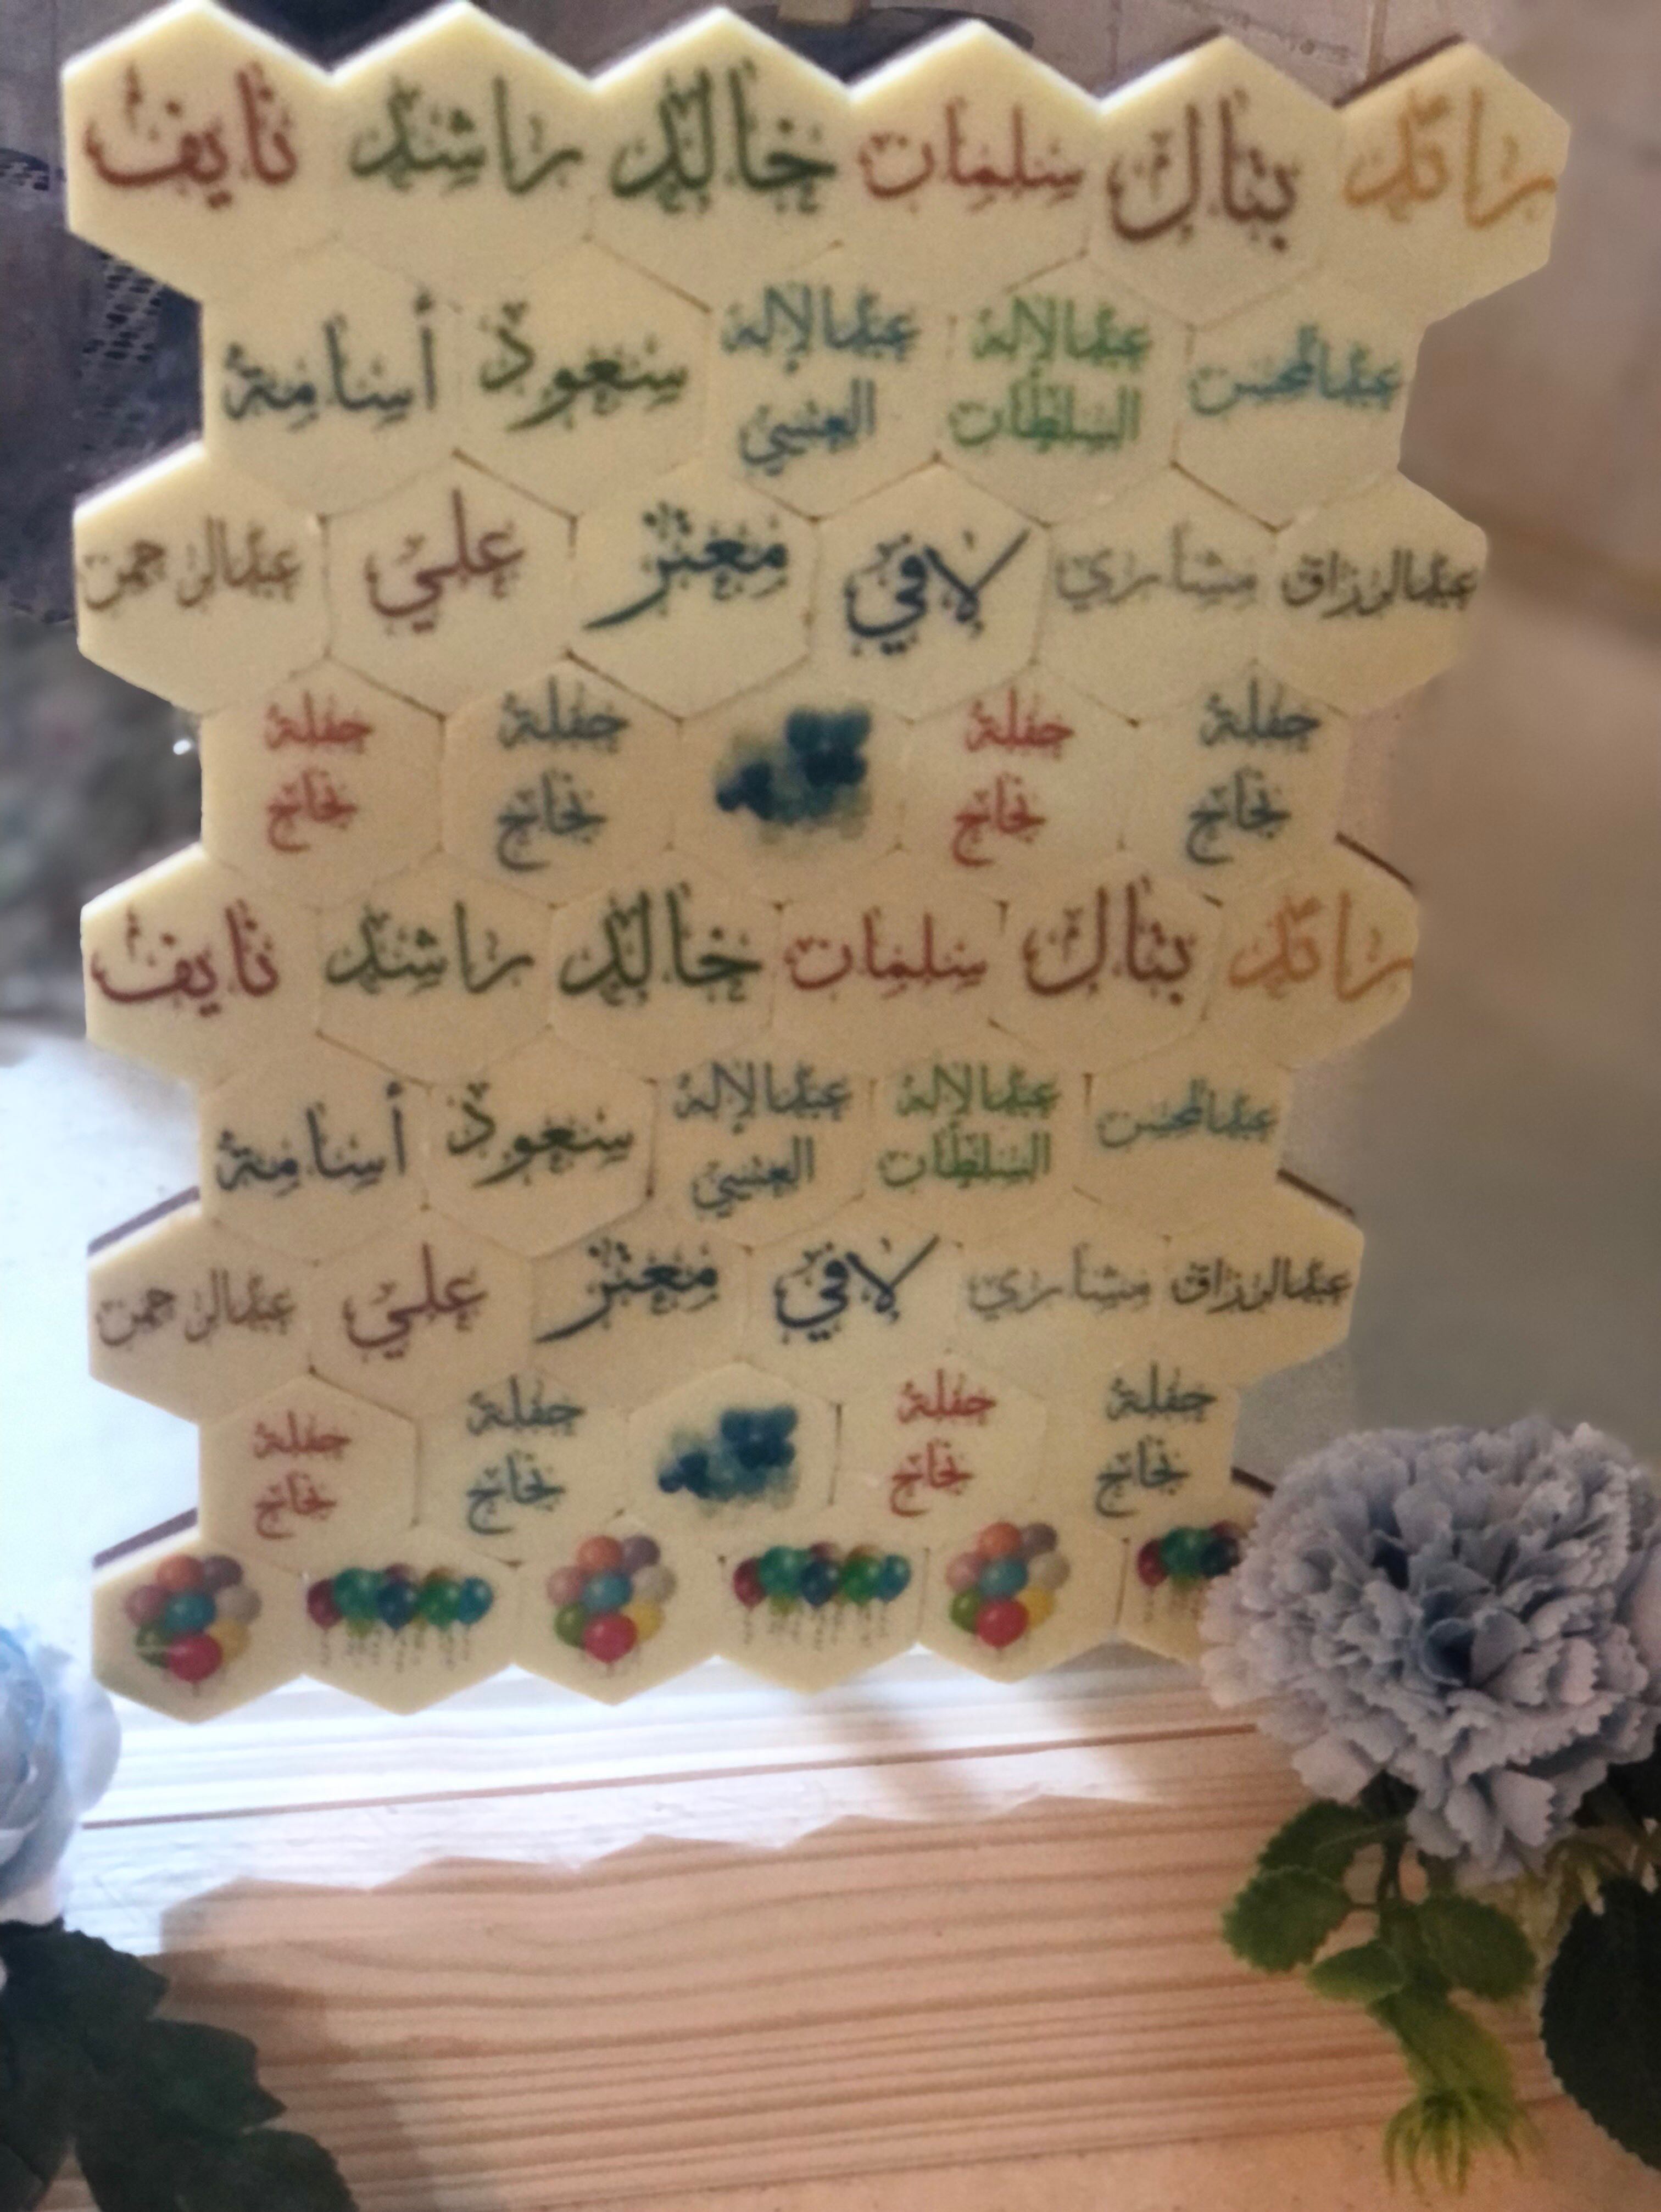 رائد بتال سلمان خالد راشد نايف
عبدالمحسن عبدالإله السلطان عبدالإله العتيبي سعود أسامة
عبدالرزاق مشاري لافي معتز علي عبدالرحمن
حفلة نجاح حفلة نجاح حفلة نجاح حفلة نجاح
رائد بتال سلمان خالد راشد نايف
عبدالمحسن عبدالإله السلطان عبدالإله العتيبي سعود أسامة
عبدالرزاق مشاري لافي معتز علي عبدالرحمن
حفلة نجاح حفلة نجاح حفلة نجاح حفلة نجاح